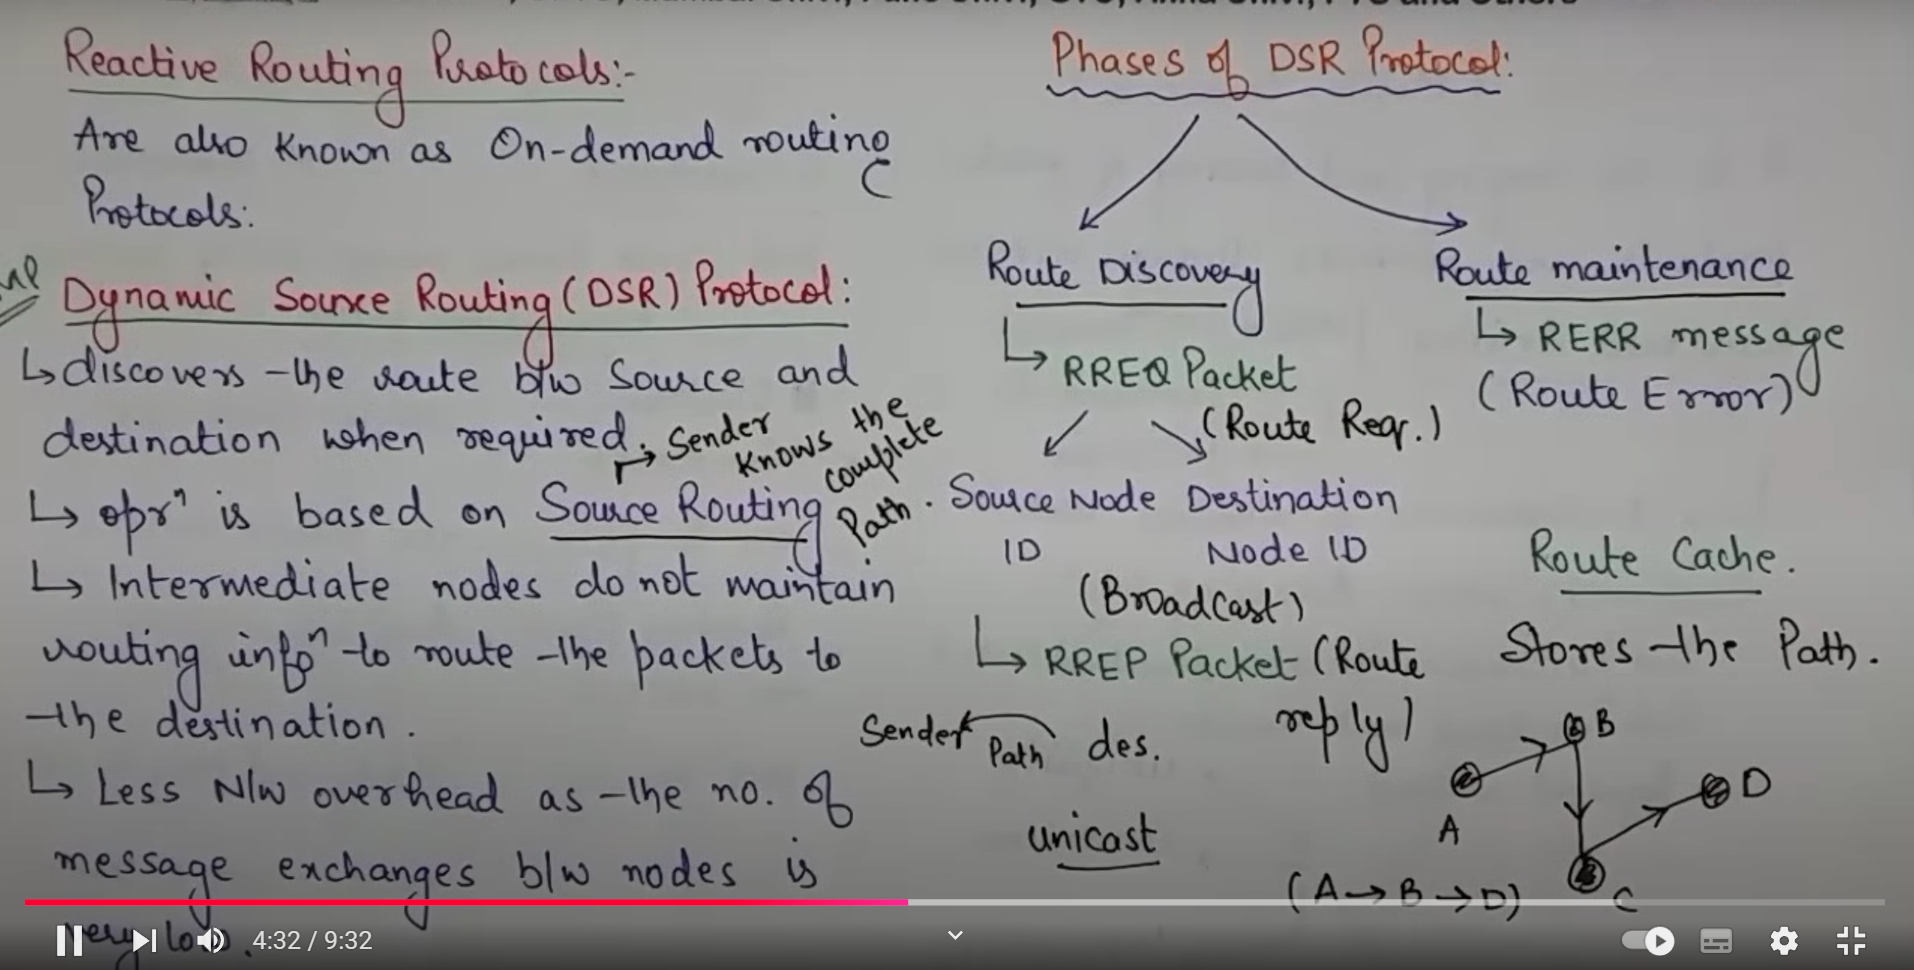 Reactive Routing Protocols:-
Are also known as On-demand routing
Protocols:
Dynamic Source Routing (DSR) Protocol:
↳ discovers the route b/w Source and
destination when required.
→ Sender
knows the
complete
Path.
↳ oprⁿ is based on Source Routing
↳ Intermediate nodes do not maintain
routing infoⁿ to route the packets to
the destination.
↳ Less N/w overhead as the no. of
message exchanges b/w nodes is
very low.
Phases of DSR Protocol:
Route Discovery
↳ RREQ Packet
(Route Req.)
Source Node Destination
ID Node ID
(Broadcast)
↳ RREP Packet (Route
reply)
Sender Path des.
unicast
Route maintenance
↳ RERR message
(Route Error)
Route Cache.
Stores the Path.
B
D
A
C
(A → B → D)
4:32 / 9:32